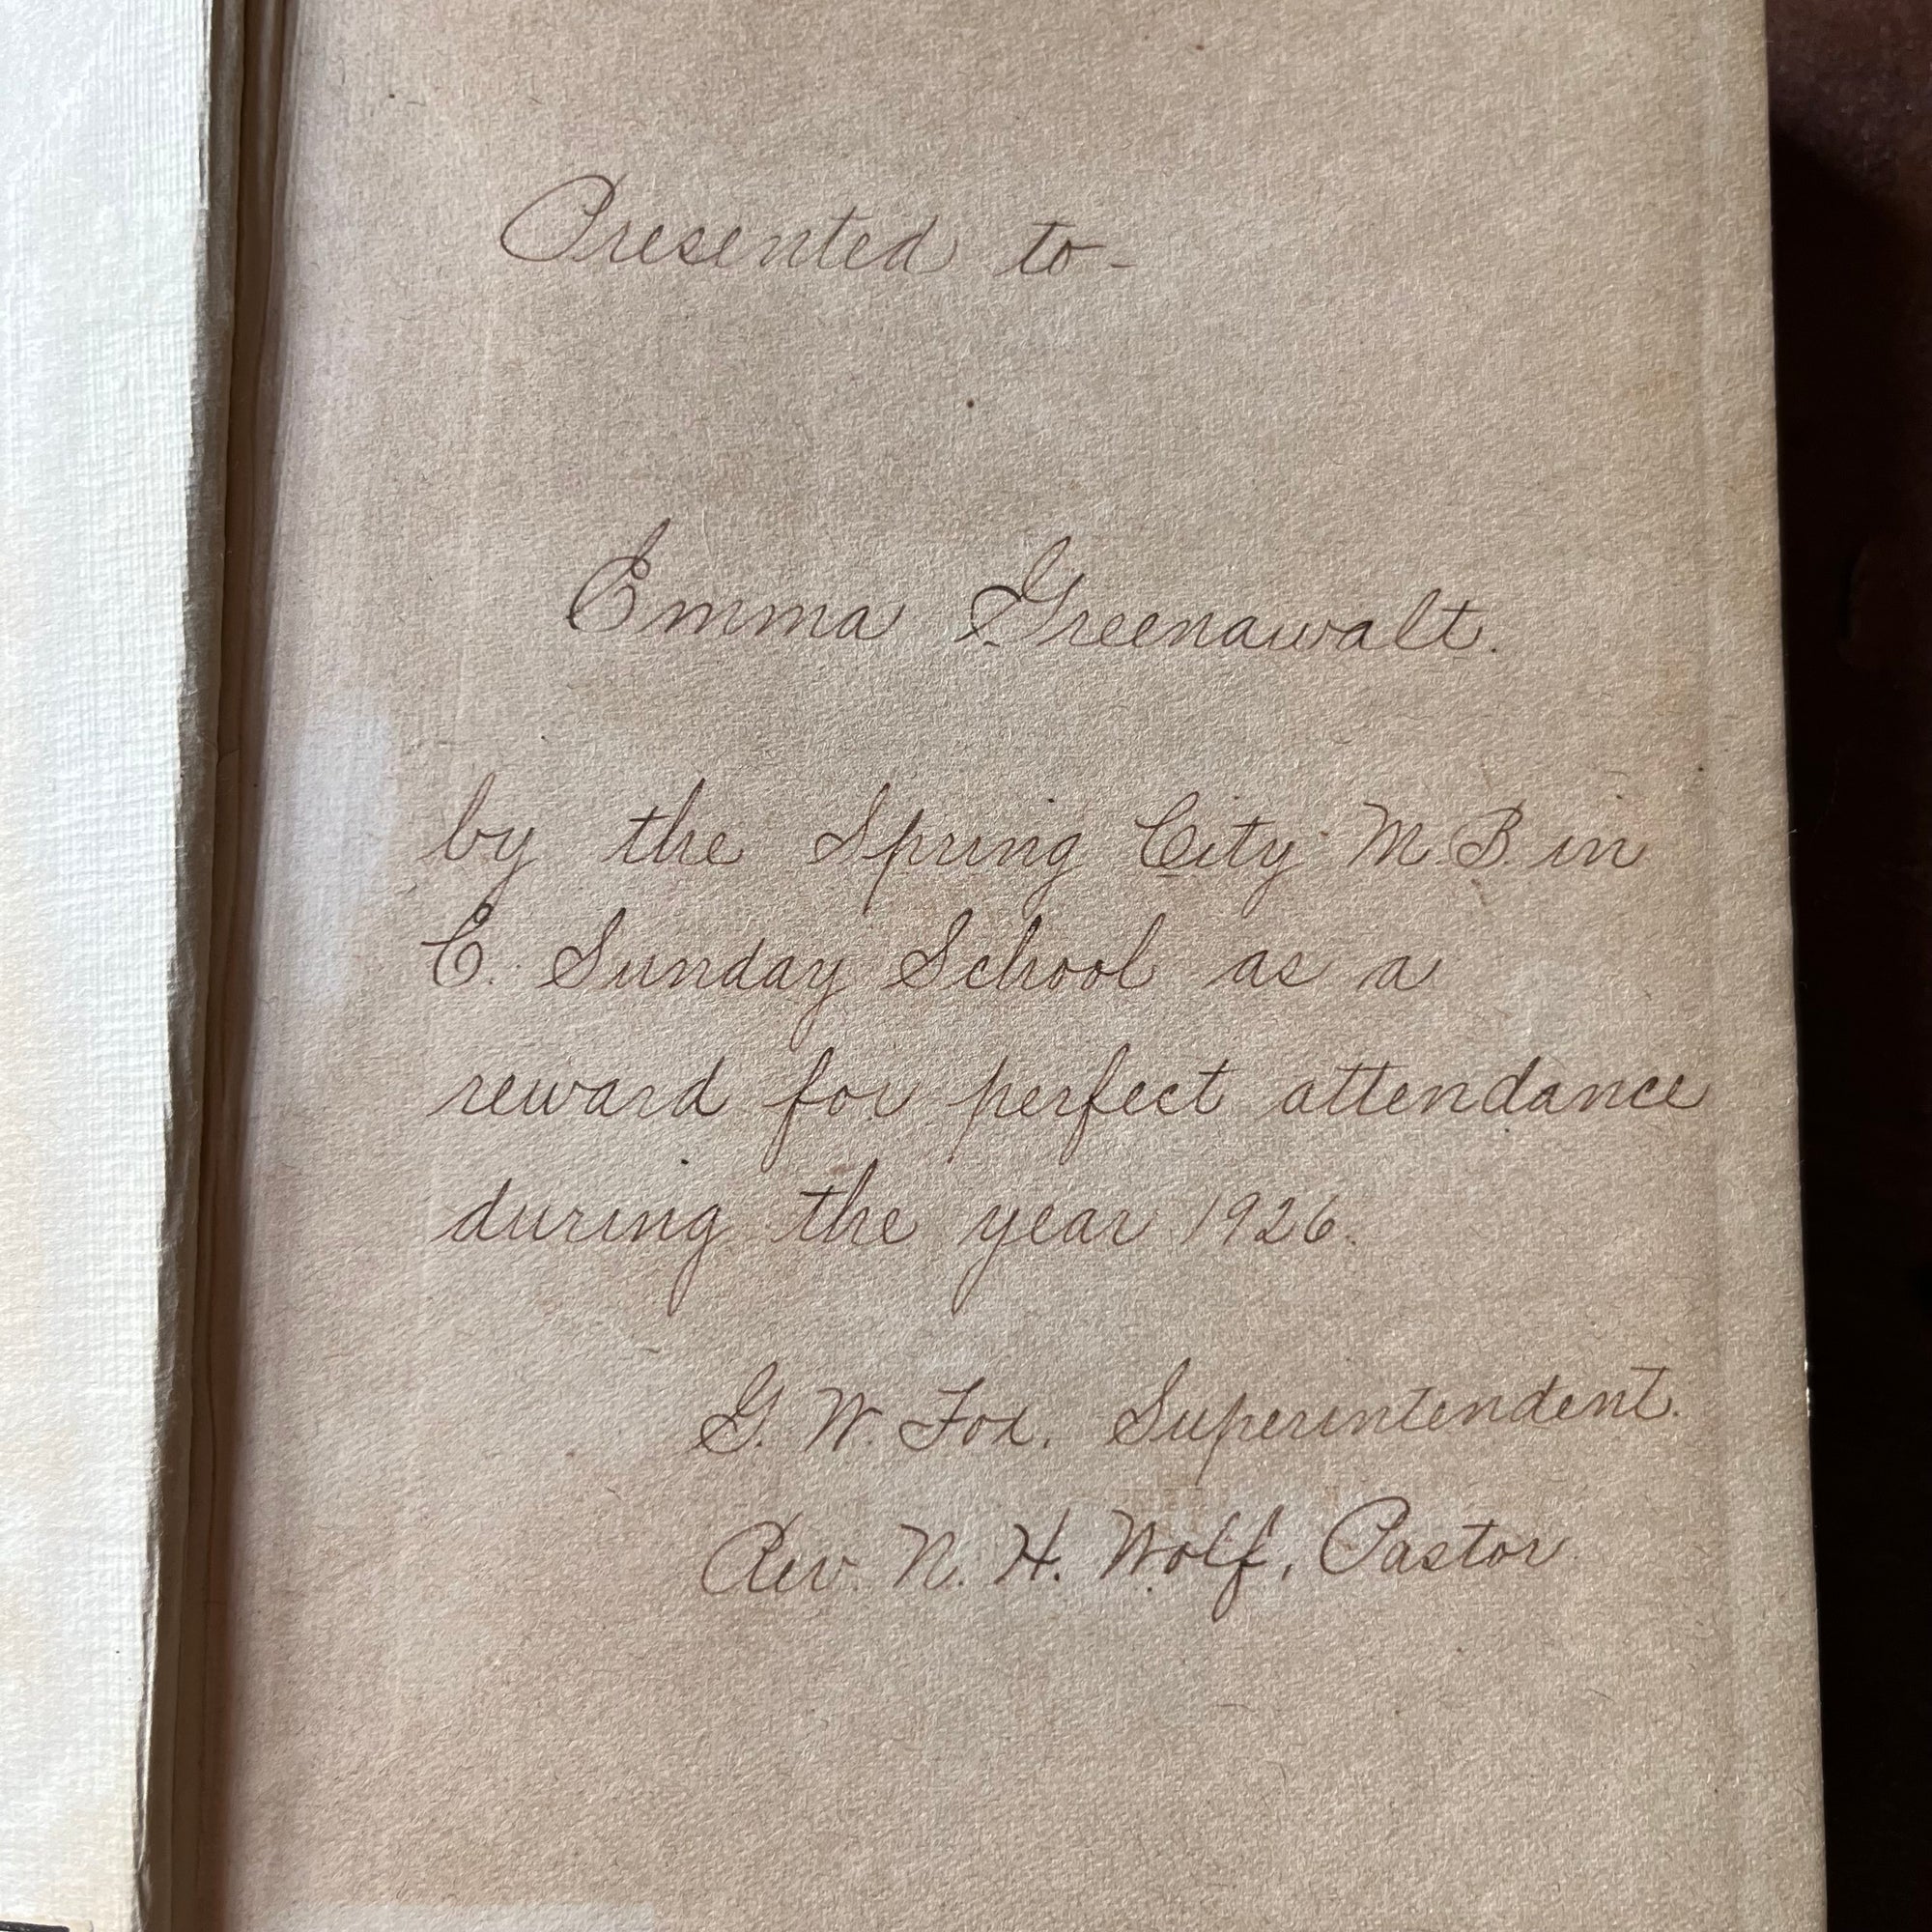 Presented to -
Emma Greenawalt.
by the Spring City M. B. in
C. Sunday School as a
reward for perfect attendance
during the year 1926.
G. W. Fox, Superintendent.
Rev. N. H. Wolf, Pastor